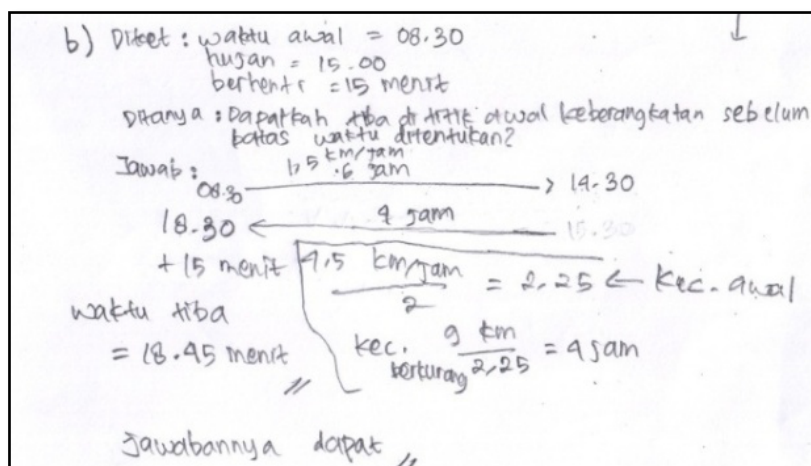 b) Diket : waktu awal = 08.30
hujan = 15.00
berhenti = 15 menit
Ditanya : Dapatkah tiba di titik awal keberangkatan sebelum
batas waktu ditentukan?
Jawab : 1,5 km/jam
.6 jam
08.30 > 14.30
4 jam
18.30 15.30
+ 15 menit 4.5 km/jam
2 = 2,25 ← kec. awal
waktu tiba
= 18.45 menit kec. berkurang 9 km
2,25 = 4 jam
Jawabannya dapat